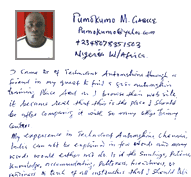 Pumokumo M. Gabus
Pumokumo@yahoo.com
Nigeria W/Africa.
I came to of Technocrat Automation through a
friend in my quest to find a good automation
training place and so I browse their web site
it became real that this is the place I should
be after comparing it with so many other Training
Centers.
My experience in Technocrat Automation Chennai
India can not be explained in few words and many
words would either not do. Is it the Teachings, Patience,
Knowledge, accommodating, Politeness,
of all instructors that I should